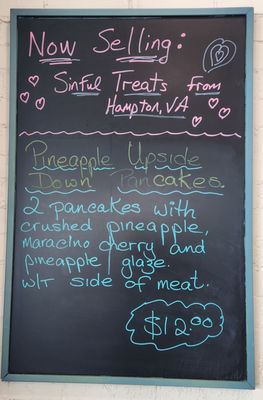 Now Selling:
Sinful Treats from
Hampton, VA
Pineapple Upside
Down Pancakes.
2 pancakes with
crushed pineapple,
maracino cherry and
pineapple glaze.
w/t side of meat.
$12.00